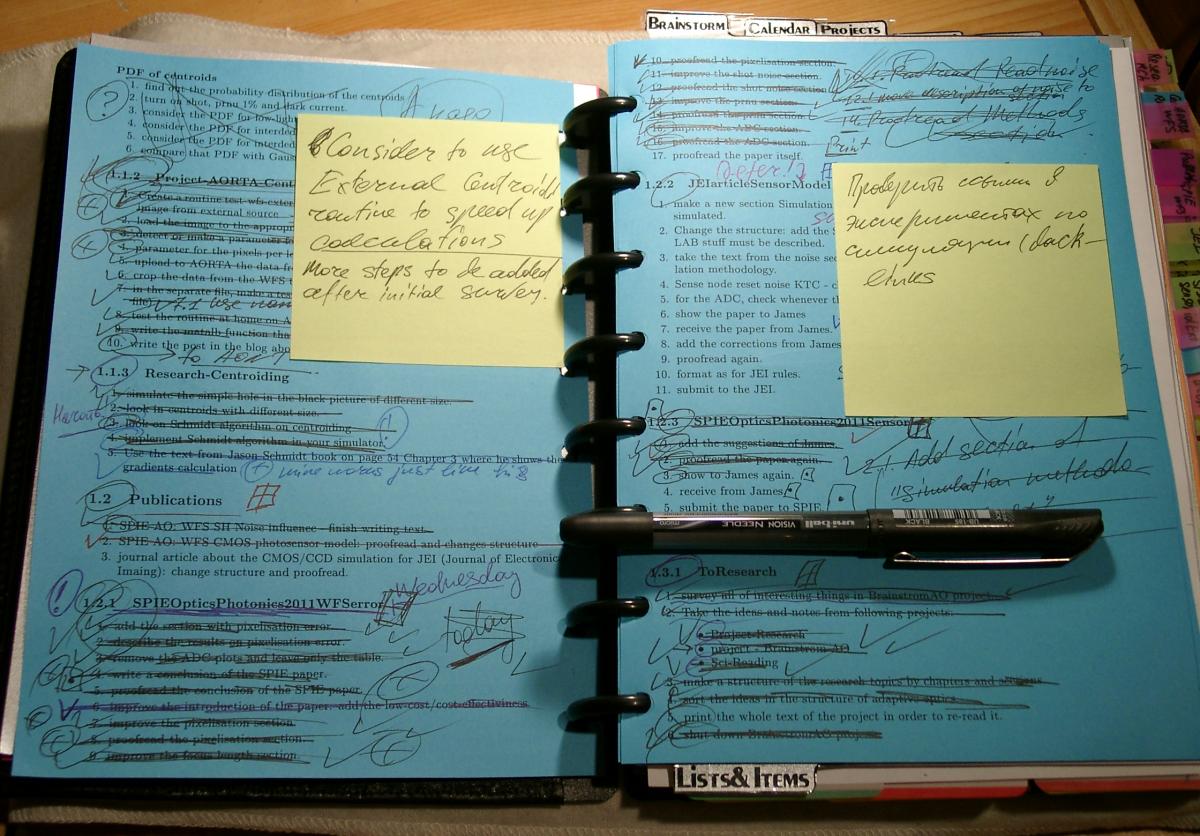 BRAINSTORM
CALENDAR
PROJECTS
PDF of centroids
1. find out the probability distribution of the centroids
2. (turn on shot, prnu 1% and dark current.
3. consider the PDF for low-ligh
4. consider the PDF for interded
5. consider the PDF for interded
6. compare that PDF with Gaus
?
Consider to use
External Centroid
routine to speed up
calculations
more steps to be added
after initial survey.
1.1.2 Project-AORTA-Cent
1. Create a routine test-wfs-exter
image from external source
2. load the image to the approp
3. detect or make a parameter fo
4. parameter for the pixels per le
5. upload to AORTA the data fr
6. crop the data from the WFS t
7. in the separate file, make a test
file)
8. test the routine at home on A
9. write the matalb function tha
10. write the post in the blog abo
1.1.3 Research-Centroiding
1. simulate the simple hole in the black picture of different size.
2. look in centroids with different size.
3. look on Schmidt algorithm on centroiding.
4. implement Schmidt algorithm in your simulator.
5. Use the text from Jason Schmidt book on page 54 Chapter 3 where he shows the
gradients calculation
1.2 Publications
1. SPIE-AO: WFS SH Noise influence - finish writing text.
2. SPIE-AO: WFS CMOS photosensor model: proofread and changes structure
3. journal article about the CMOS/CCD simulation for JEI (Journal of Electronic
Imaing): change structure and proofread.
Wednesday
!
1.2.1 SPIEOpticsPhotonics2011WFSerror
today
1. add the section with pixelisation error.
2. describe the results on pixelisation error.
3. remove the ADC plots and leave only the table.
4. write a conclusion of the SPIE paper.
5. proofread the conclusion of the SPIE paper.
6. improve the introduction of the paper: add the low-cost/cost-effectiveness
7. improve the pixelisation section.
8. proofread the pixelisation section.
9. improve the focus length section.
10. proofread the pixelisation section.
11. improve the shot noise section.
12. proofread the shot noise section.
13. improve the prnu section.
14. proofread the prnu section.
15. improve the ADC section.
16. proofread the ADC section.
17. proofread the paper itself.
Print
14. Proofread Methods
section
1.2.2 JEIarticleSensorModel
1. make a new section Simulation
simulated.
2. Change the structure: add the S
LAB stuff must be described.
3. take the text from the noise sec
lation methodology.
4. Sense node reset noise KTC - c
5. for the ADC, check whenever th
6. show the paper to James
7. receive the paper from James.
8. add the corrections from James
9. proofread again.
10. format as for JEI rules.
11. submit to the JEI.
Проверить ссылки в
экспериментах по
симуляции (back-
links
1.2.3 SPIEOpticsPhotonics2011Sensor
1. add the suggestions of James.
2. proofread the paper again.
3. show to James again.
4. receive from James
5. submit the paper to SPIE.
2.1. Add section of
"simulation methodo-
uni-ball VISION NEEDLE micro
UB-185
BLACK
1.3.1 ToResearch
1. survey all of interesting things in BrainstromAO project.
2. Take the ideas and notes from following projects:
• Project-Research
• project - Brainstrom-AO
• Sci-Reading
3. make a structure of the research topics by chapters and
4. sort the ideas in the structure of adaptive optics.
5. print the whole text of the project in order to re-read it.
6. shut down BrainstromAO project
LISTS & ITEMS